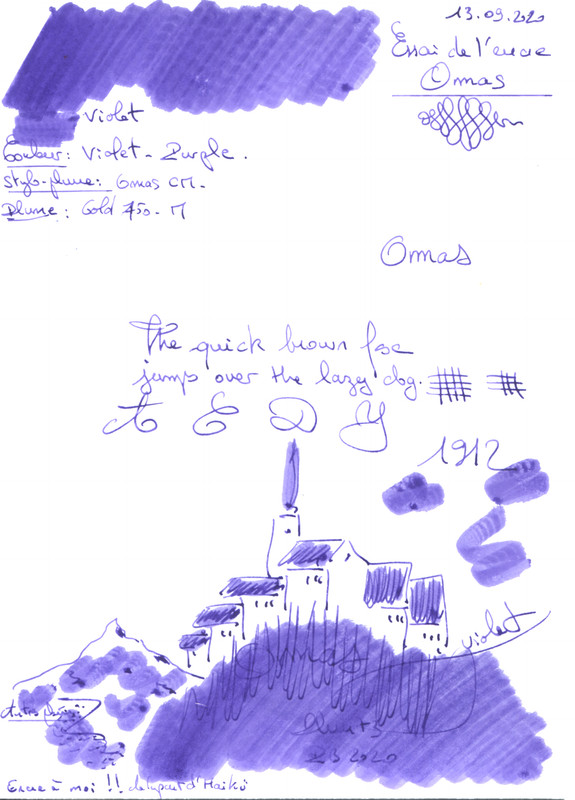 13.09.2020
Essai de l'encre
Omas
violet
Couleur: Violet - Purple.
Stylo-plume: Omas CM.
Plume: Gold 750 - M
Omas
The quick brown fox
jump over the lazy dog.
A E D Y
1912
violet
Omas
2020
Encre à moi !! de la part d'Haïkü